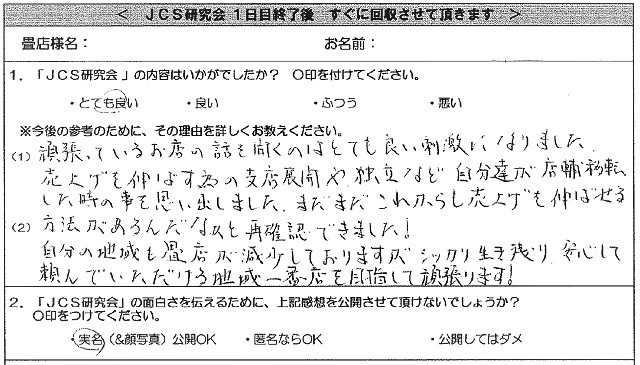 ＜ JCS研究会 1日目終了後 すぐに回収させて頂きます ＞
畳店様名： お名前：
1．「JCS研究会」の内容はいかがでしたか？ ○印を付けてください。
・とても良い ・良い ・ふつう ・悪い
※今後の参考のために、その理由を詳しくお教えください。
(1) 頑張っているお店の話を聞くのはとても良い刺激になりました。
売上げを伸ばす為の支店展開や独立など 自分達が店舗移転
した時の事を思い出しました。まだまだこれからも売上げを伸ばせる
(2) 方法があるんだなぁと再確認できました！
自分の地域も畳店が減少しておりますが シッカリ生き残り、安心して
頼んでいただける地域一番店を目指して頑張ります！
2．「JCS研究会」の面白さを伝えるために、上記感想を公開させて頂けないでしょうか？
○印をつけてください。
・実名（&顔写真）公開OK ・匿名ならOK ・公開してはダメ